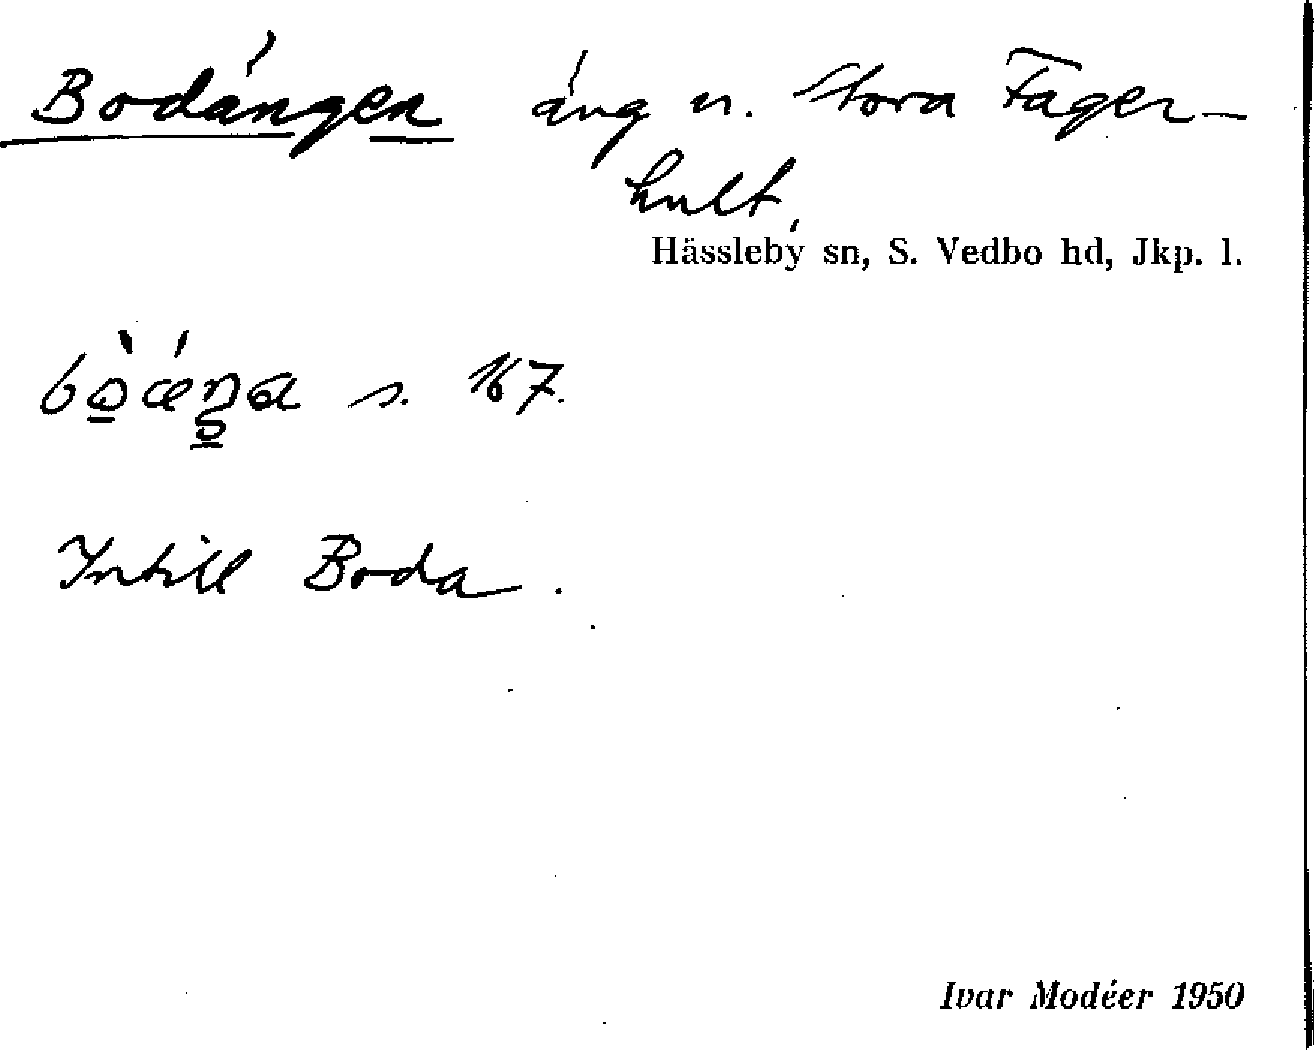 Bodängen äng n. Stora Fager-
hult,
Hässleby sn, S. Vedbo hd, Jkp. l.
s. 167.
Intill Boda.
Ivar Modéer 1950